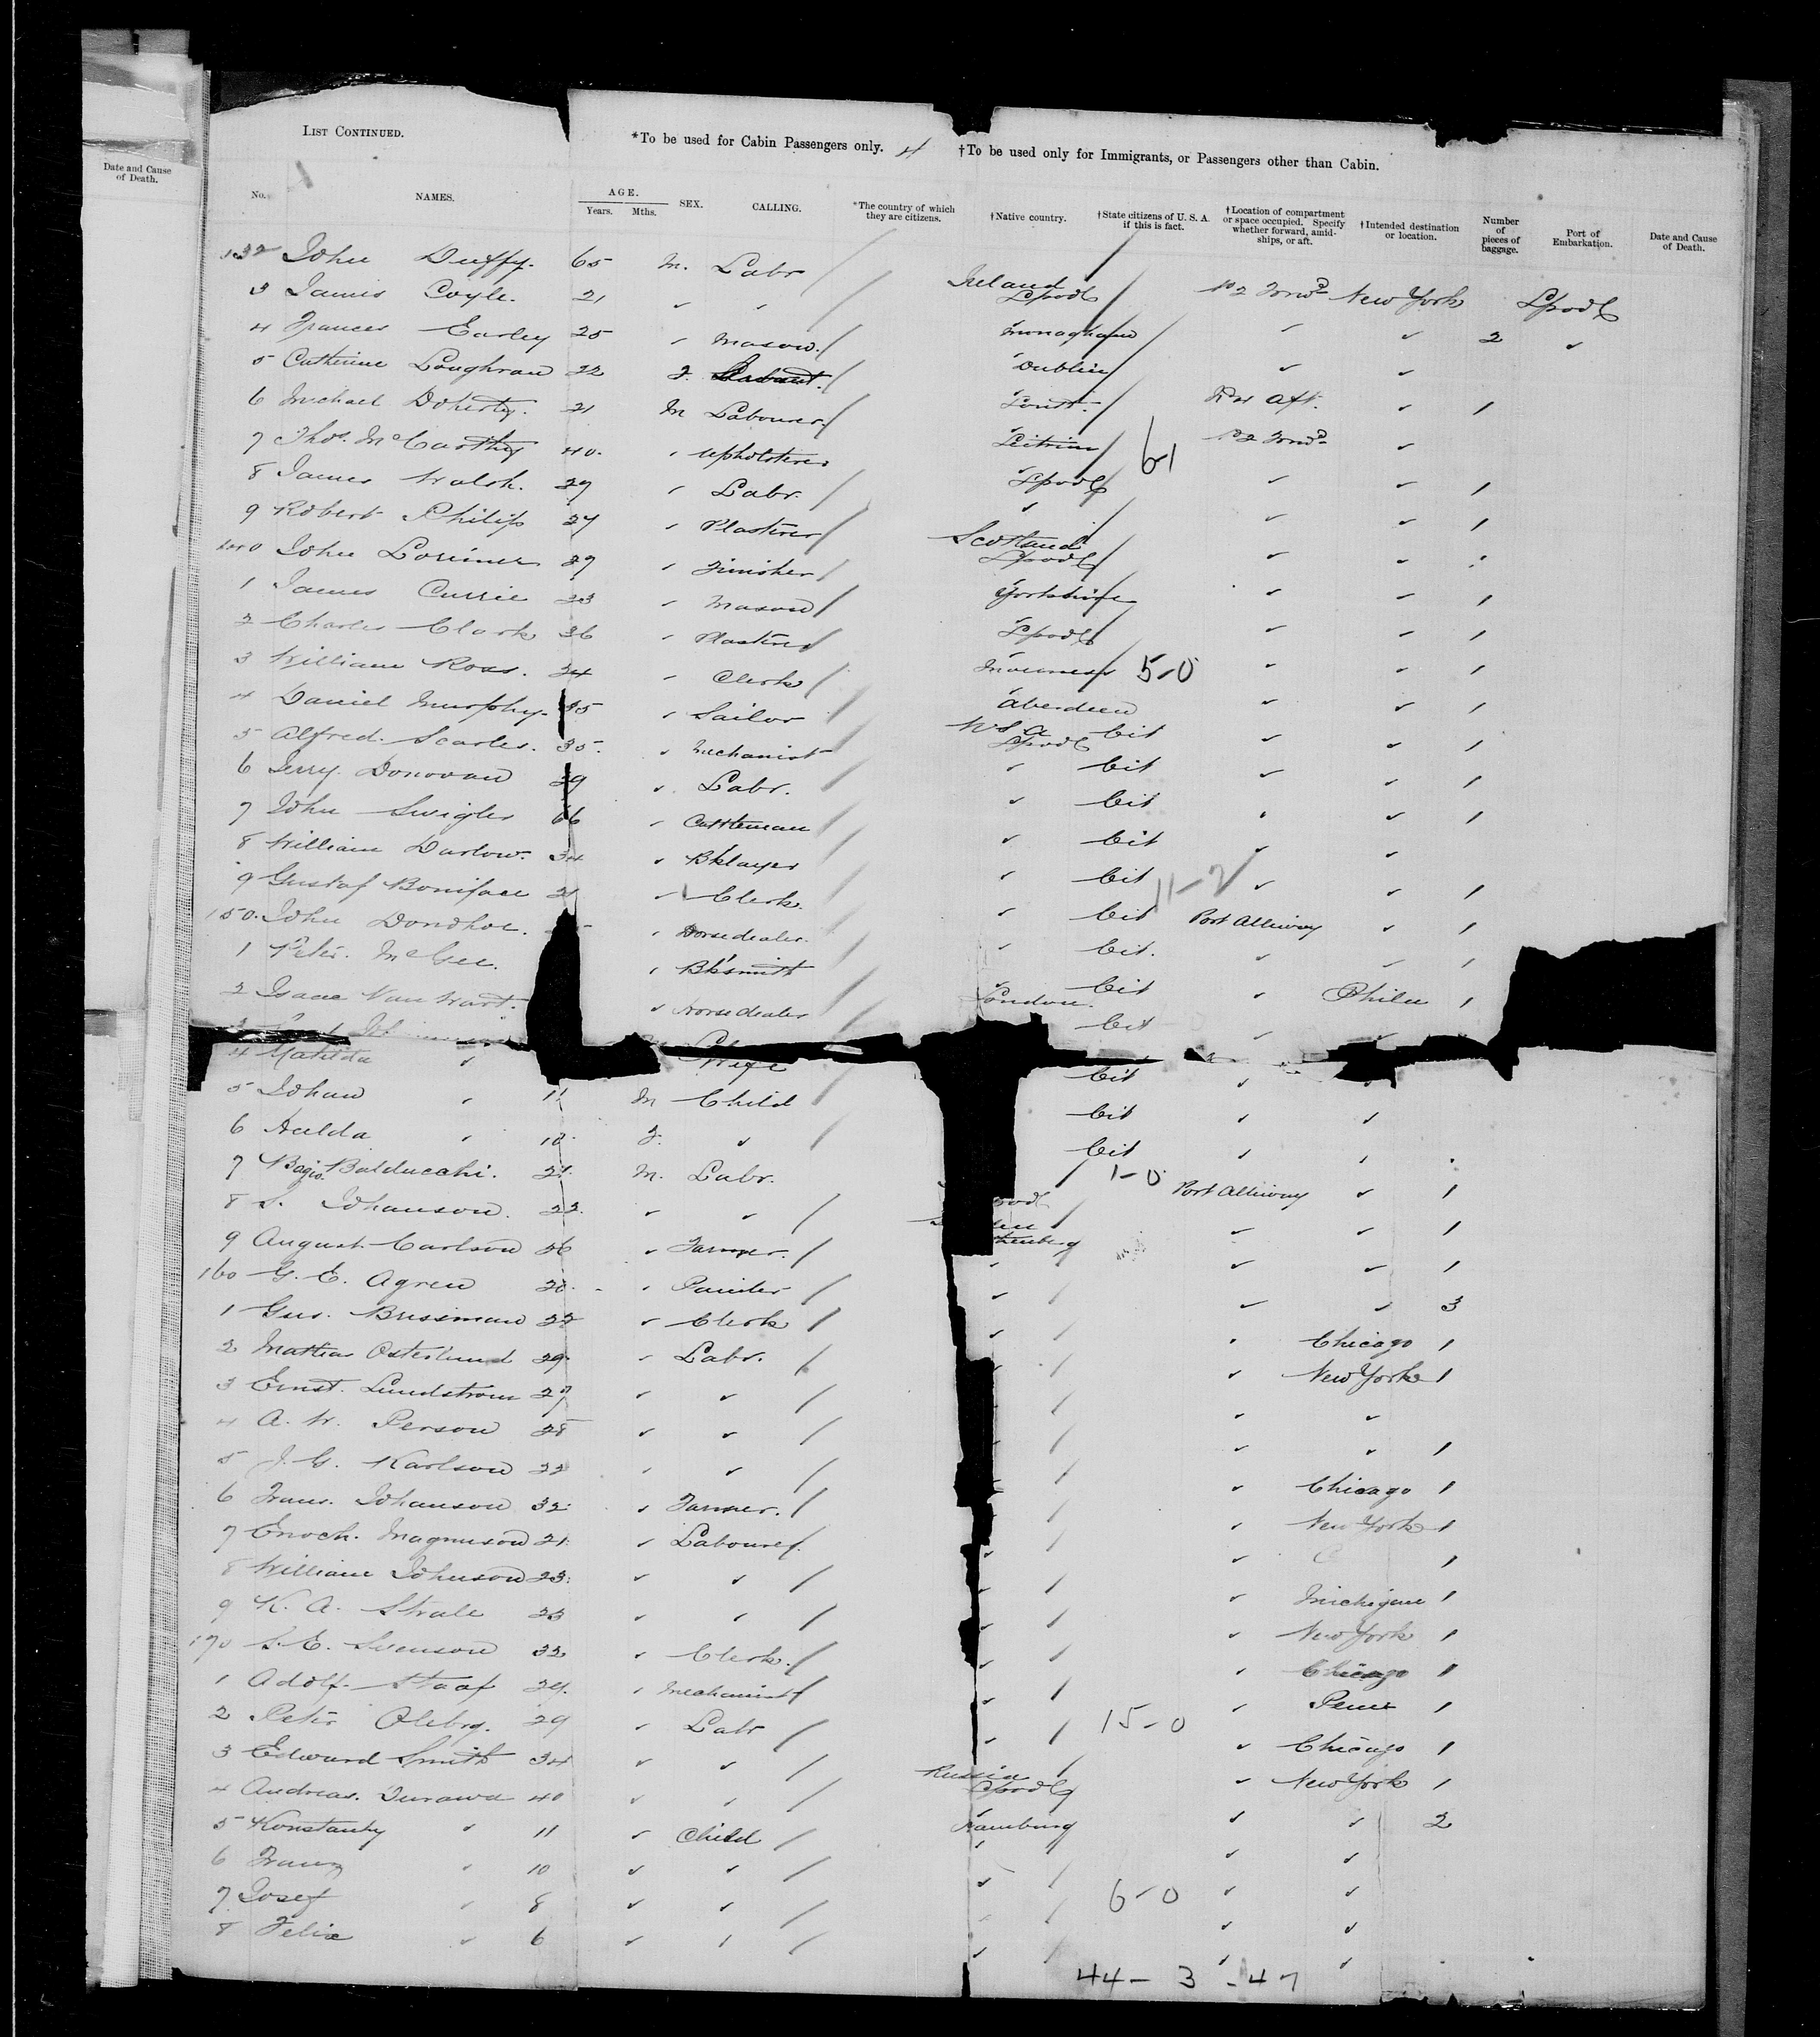 Date and Cause of Death.
LIST CONTINUED.
*To be used for Cabin Passengers only. 4
†To be used only for Immigrants, or Passengers other than Cabin.
No. NAMES. AGE. Years. Mths. SEX. CALLING. *The country of which they are citizens. †Native country. †State citizens of U. S. A. if this is fact. †Location of compartment or space occupied. Specify whether forward, amidships, or aft. †Intended destination or location. Number of pieces of baggage. Port of Embarkation. Date and Cause of Death.
132 John Duffy. 65 M. Labr / Ireland Lpool / No 2 Forwd New York Lpool
3 James Coyle. 21 " " / Monaghan " " 2 "
4 Frances Earley 25 " Mason. / Dublin " "
5 Catherine Loughran 22 F. / No 4 Aft. " 1
6 Michael Doherty. 21 M Labourer / Leitrim / No 2 Forwd "
7 Thos. McCarthy 40. " Upholsterer Lpool " " 1
8 James Walsh. 29 " Labr. / " " " 1
9 Robert Philip 27 " Plasterer / Scotland Lpool " "
140 John Lorimer 39 " Finisher / Yorkshire " " 1
1 James Currie 23 " Mason / Lpool " " 1
2 Charles Clark 36 " Plasterer Inverness 5-0 " " 1
3 William Ross. 24 " Clerk / Aberdeen " " 1
4 Daniel Murphy. 35 " Sailor / U S A Lpool Cit " " 1
5 Alfred Searles. 35. " Mechanist " Cit " " 1
6 Jerry Donovan 39 " Labr. / " Cit " " 1
7 John Swigler 66 " Cattleman " Cit " "
8 William Darlow. 34 " Bklayer " Cit 11-2 " " 1
9 Gustaf Boniface 21 " Clerk. " Cit Port Alleway " 1
150. John Donohoe. " Horsedealer. " Cit. " " 1
1 Peter. McGee. " Bksmith " Cit " Phila 1
2 Isaac Van Wart. " Horsedealer London. Cit " "
4 Matilda " Wife Cit "
5 Johan " 11 M Child Cit " "
6 Hulda " 10. F. " / Cit " "
7 Balducchi. M. Labr. / 1-0 Port Alleway " 1
8 S. Johanson. 22. " " / " " 1
9 August Carlson 56 " Farmer. / " " " 1
160 G. E. Agren 20. " Painter / " / " " 3
1 Gus. 22 " Clerk / " / " Chicago 1
2 Mattias Osterlund 29 " Labr. / / " New York 1
3 Ernst. Lundstrom 27 " " / / " "
4 A. W. Person 28 " " / / " " 1
5 J. G. Karlson 22 " " / / " Chicago 1
6 Frans. Johanson 32. " Farmer. / / " New York 1
7 Enoch. Magnuson 21. " Labourer. " / " 1
8 William Johnson 23. " " / / " Michigan 1
9 K. A. Strale 23 " " / / " New York 1
170 S. E. Svenson 32 " Clerk. / " / " Chicago 1
1 Adolf. Staaf 24. " Mechanist / " / " Penn 1
2 Peter 29 " Labr / " / 15-0 " Chicago 1
3 Edward Smith 34 " " / Russia Lpool " New York 1
4 Andreas. 40 " " / Hamburg " " 2
5 Konstanty " 11 " Child / " / " "
6 Franz " 10 " " / " / " "
7 Josef " 8 " " / / 6-0 " "
8 Felix " 6 " " / " / " "
44 - 3 - 47